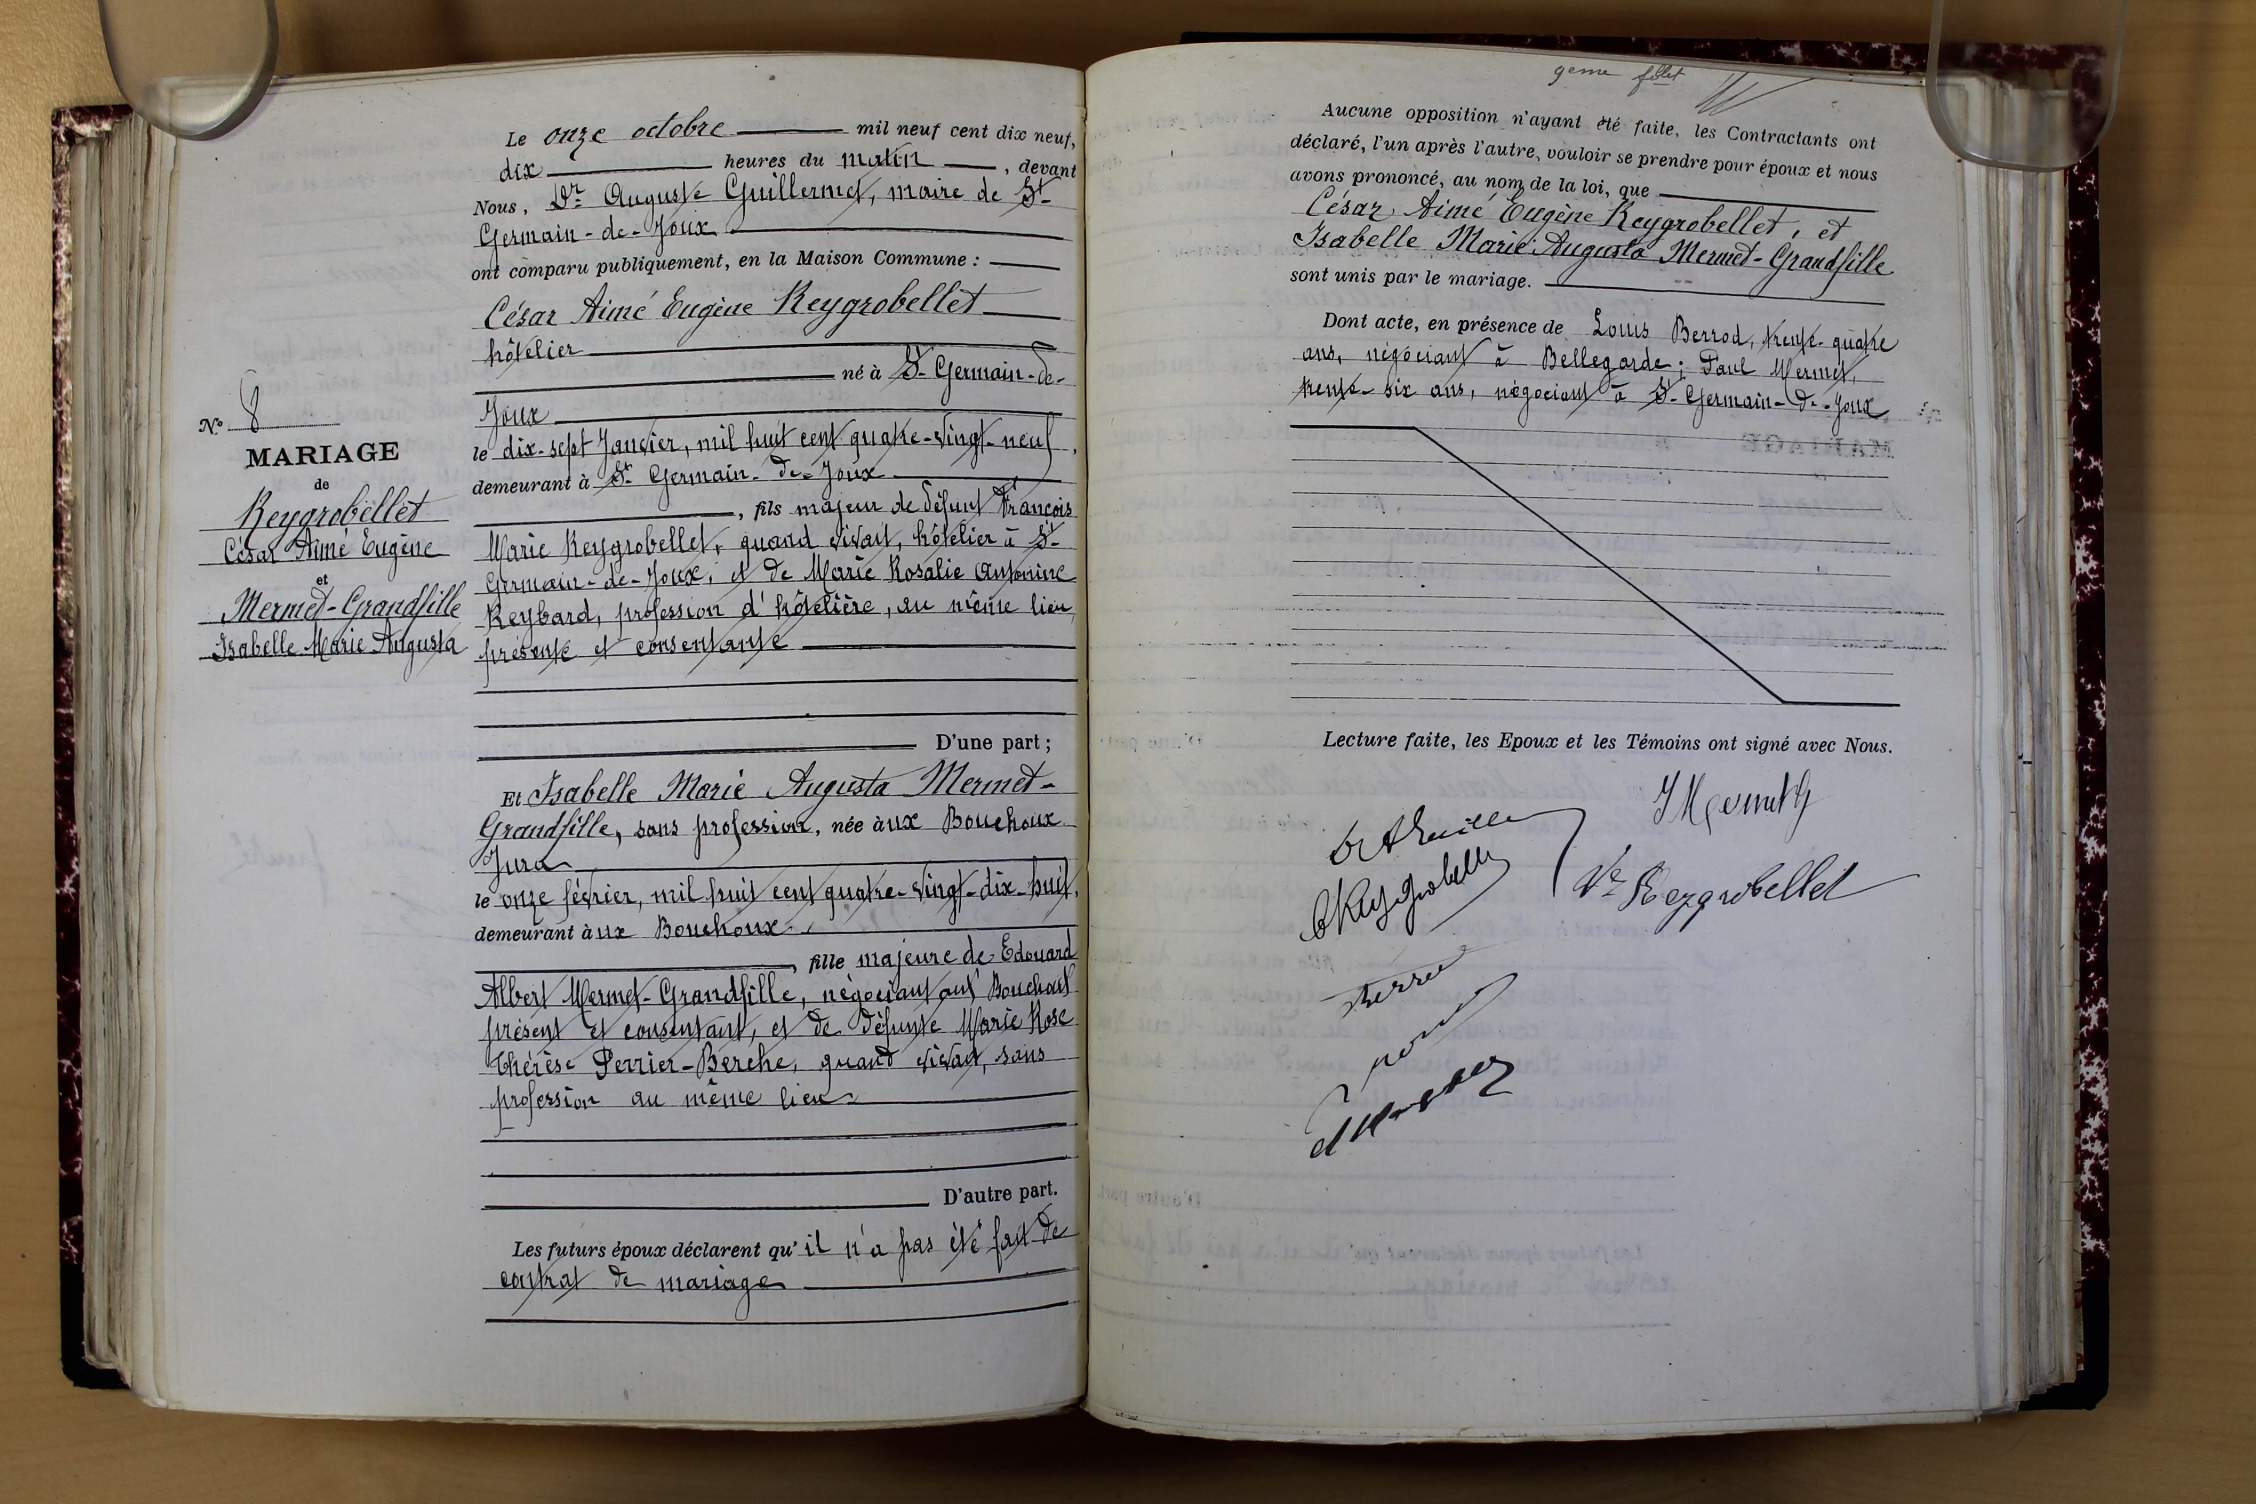 Le onze octobre mil neuf cent dix neuf,
dix heures du matin, devant
Nous, Dr Auguste Guillermet, maire de St
Germain-de-Joux
ont comparu publiquement, en la Maison Commune :
César Aimé Eugène Reygrobellet
hôtelier
né à St Germain-de-
Joux
le dix-sept Janvier, mil huit cent quatre-vingt-neuf,
demeurant à St Germain-de-Joux
, fils majeur de défunt François
Marie Reygrobellet, quand vivait, hôtelier à St
Germain-de-Joux, et de Marie Rosalie Antonine
Reybard, profession d'hôtelière, au même lieu,
présente et consentante
D'une part ;
Et Isabelle Marie Augusta Mermet-
Grandfille, sans profession, née àux Bouchoux
Jura
le onze février, mil huit cent quatre-vingt-dix-huit,
demeurant àux Bouchoux
, fille majeure de Edouard
Albert Mermet-Grandfille, négociant aux Bouchoux
présent et consentant, et de défunte Marie Rose
Thérèse Perrier-Berche, quand vivait, sans
profession au même lieu
D'autre part.
Les futurs époux déclarent qu'il n'a pas été fait de
contrat de mariage
No 8
MARIAGE
de
Reygrobellet
César Aimé Eugène
et
Mermet-Grandfille
Isabelle Marie Augusta
9eme folet
Aucune opposition n'ayant été faite, les Contractants ont
déclaré, l'un après l'autre, vouloir se prendre pour époux et nous
avons prononcé, au nom de la loi, que
César Aimé Eugène Reygrobellet, et
Isabelle Marie Augusta Mermet-Grandfille
sont unis par le mariage.
Dont acte, en présence de Louis Berrod, trente-quatre
ans, négociant à Bellegarde ; Paul Mermet,
trente-six ans, négociant à St Germain-de-Joux
Lecture faite, les Epoux et les Témoins ont signé avec Nous.
IMermetG
CReygrobellet
Ve Reygrobellet